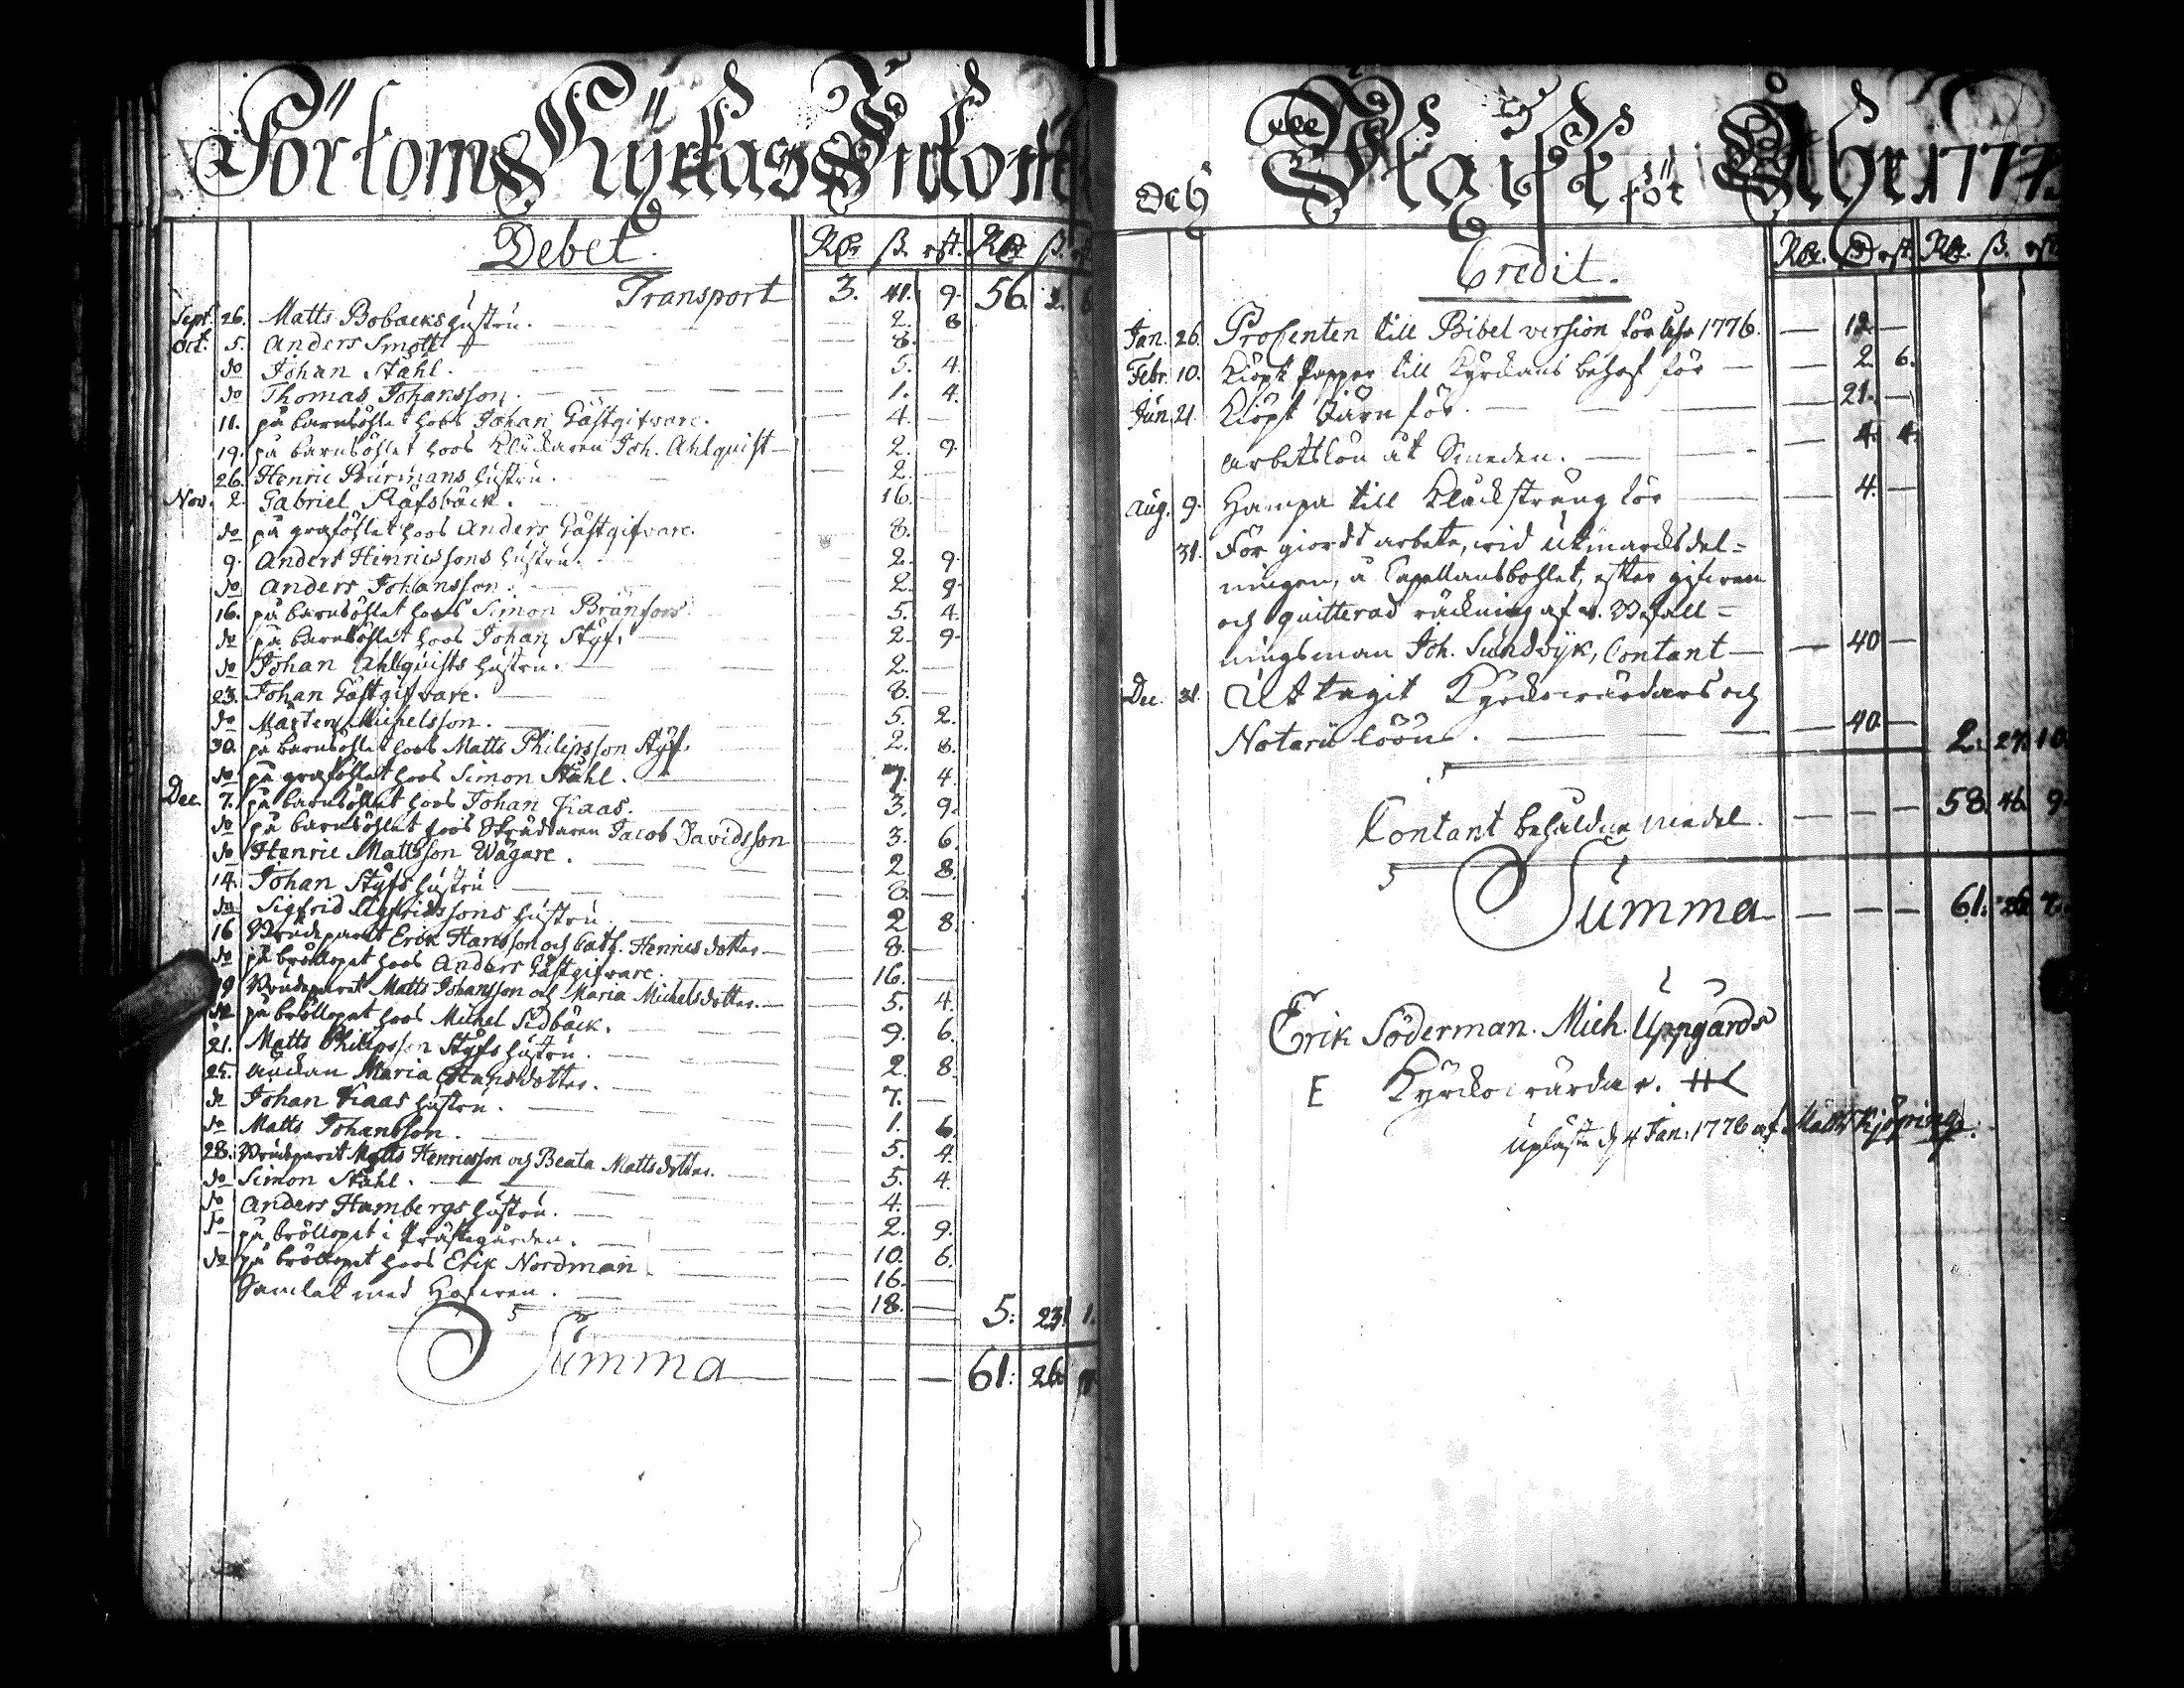 Pörtoms Kÿrkas Inkom
Debet. Rdr ß. rst. Rdr ß. rst.
Transport 3. 41. 9. 56. 2. 6
Sept. 26. Matts Bobacks hustru. 2. 8
Oct. 5. Anders Smolt 8.
do Johan Ståhl. 5. 4.
do Thomas Johansson. 1. 4.
11. på barnsöhlet hoos Johan Gästgifvare. 4. —
19. på barnsöhlet hoos Kläckaren Joh. Ahlquist — 2. 9.
26. Henric Burmans hustru. 2. —
Nov. 2. Gabriel Räfsbäck. 16. —
do på graföhlet hoos Anders Gästgifvare. 8. —
9. Anders Hinricssons hustru. 2. 9.
do Anders Johansson. 2. 9.
16. på barnsöhlet hoos Simon Brånfors 5. 4.
do på barnsöhlet hoos Johan Styf. 2. 9.
do Johan Ahlquists hustru. 2. —
23. Johan Gästgifvare. 8. —
do Mårten Michelsson. 5. 2.
30. på barnsöhlet hoos Matts Philipsson Styf. 2. 8.
do på graföhlet hoos Simon Ståhl. 7. 4.
Dec. 7. på barnsöhlet hoos Johan Kaas. 3. 9.
do på barnsöhlet hoos Skräddaren Jacob Davidsson 3. 6.
do Henric Mattsson Wägare. 2. 8.
14. Johan Styfs hustru. 8. —
do Sigfrid Sigfridssons hustru. 2 8.
16 Brudparet Erik Hansson och Cath. Henricsdotter — 8. —
do på bröllopet hoos Anders Gästgifvare. 16. —
19 Brudparet Matts Johansson och Maria Michelsdotter. — 5. 4.
do på bröllopet hoos Michel Sidbäck. 9. 6.
21. Matts Philipsson Styfs hustru. 2. 8.
25. änckan Maria Hansdotter. 7. —
do Johan Kaas hustru. 1. 6.
do Matts Johansson. 5. 4.
28. Brudparet Matts Henricsson och Beata Mattsdotter. 5. 4.
do Simon Ståhl. 4. —
do Anders Hambergs hustru. 2. 9.
do på bröllopet i Prästegården. 10. 6.
do på bröllopet hoos Erik Nordman 16. —
Samlat med Hofwen. 18. — 5: 23. 1.
Summa — — — 61: 26.
och Uthgift för Åhr 1777.
Credit. Rdr. ß rst. Rdr. ß. rst.
Jan. 26. Procenten till Bibel version för Åhr 1776. — 12 —
Febr. 10. Kiöpt Papper till Kyrckans behof för — 2. 6.
Jun. 21. Kiöpt Järn för. — 21. —
arbetslön åt Smeden. — 4. 4.
Aug. 9. Hampa till Kläckstreng för — 4. —
31. För giordt arbete, wid utmarcksdel=
ningen, å Capellansbohlet, efter gifwen
och quitterad räckning af v. Befall=
ningsman Joh. Sundvyk, Contant — 40 —
Dec. 31. Uttagit Kyrckowärdars och
Notarii löön. — 40 — 2: 27. 10.
Contant behåldne medel. — — — 58. 46. 9.
Summa — — — 61: 26. 7.
Erik Söderman. Mich. Uppgårds
E Kyrckowärdar.
Upläste d. 4 Jan: 1778 af Matts Kjörning.